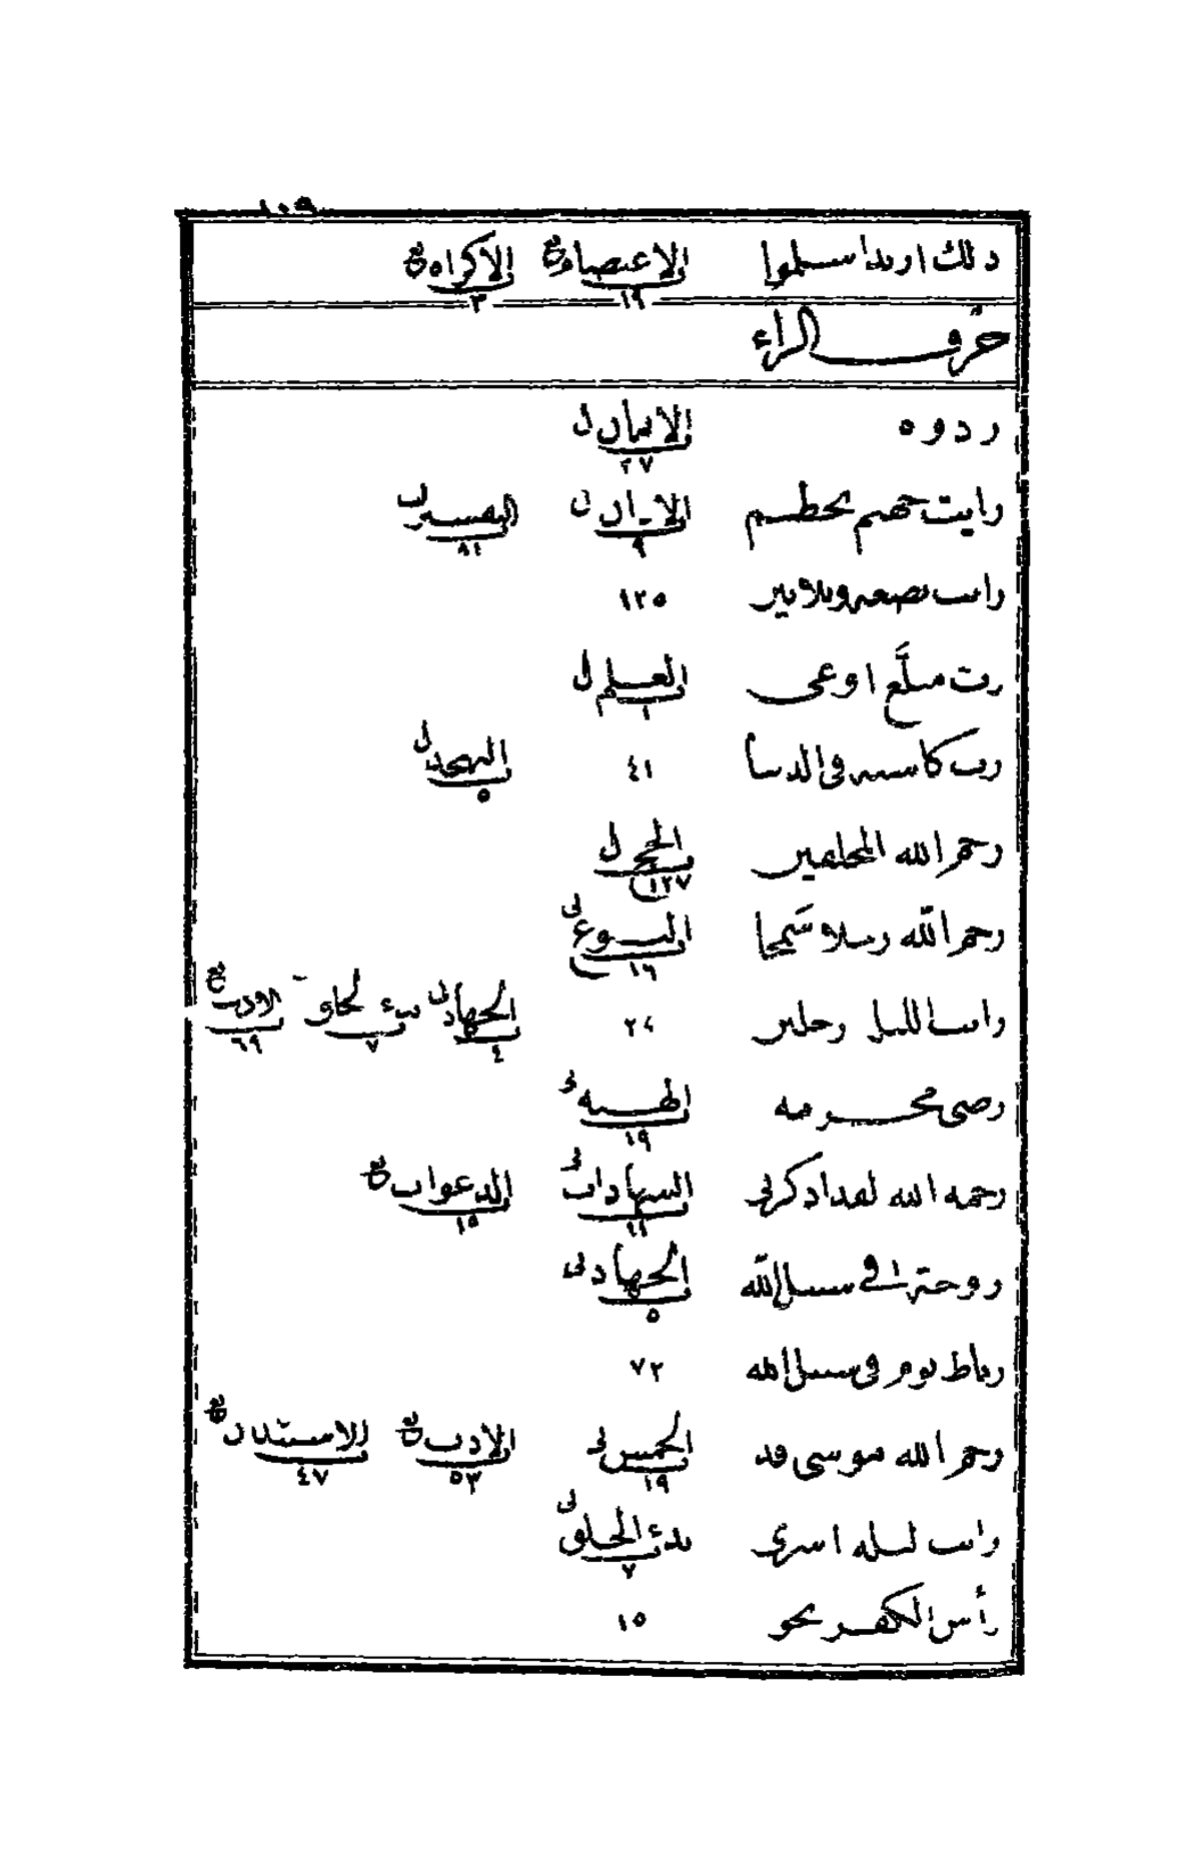 ١٠٩
ذلك اريد اسلموا الاعتصام ع الاكراه ع
١٩ ٣
حرف الراء
ردوه الايمان ل
٣٧
رايت جهنم يحطم ل التفسير ل
٩ ٩٤
رايت بضعه وثلاثين ١٢٥
رب مبلَّغ اوعى العلم ل
١
رب كاسيه في الدنيا ٤١ التهجد ل
٥
رحم الله المحلقين الحج ل
١٢٧
رحم الله رجلا سَمحا البيوع ل
١٦
رايت الليله رجلين ٢٤ الجهاد ل بدء الخلق الادب ع
٤ ٧ ٦٩
رضى مخرمه الهبه ل
١٩
رحمه الله لقد اذكرنى الشهادات ل الدعوات ع
١١ ١٥
روحة فى سبيل الله الجهاد ل
٥
رباط يوم فى سبيل الله ٧٢
رحم الله موسى قد الخمس ل الادب ع الاستئذان ع
١٩ ٥٣ ٤٧
رايت ليله اسرى بدء الخلق ل
٧
رأس الكفر نحو ١٥